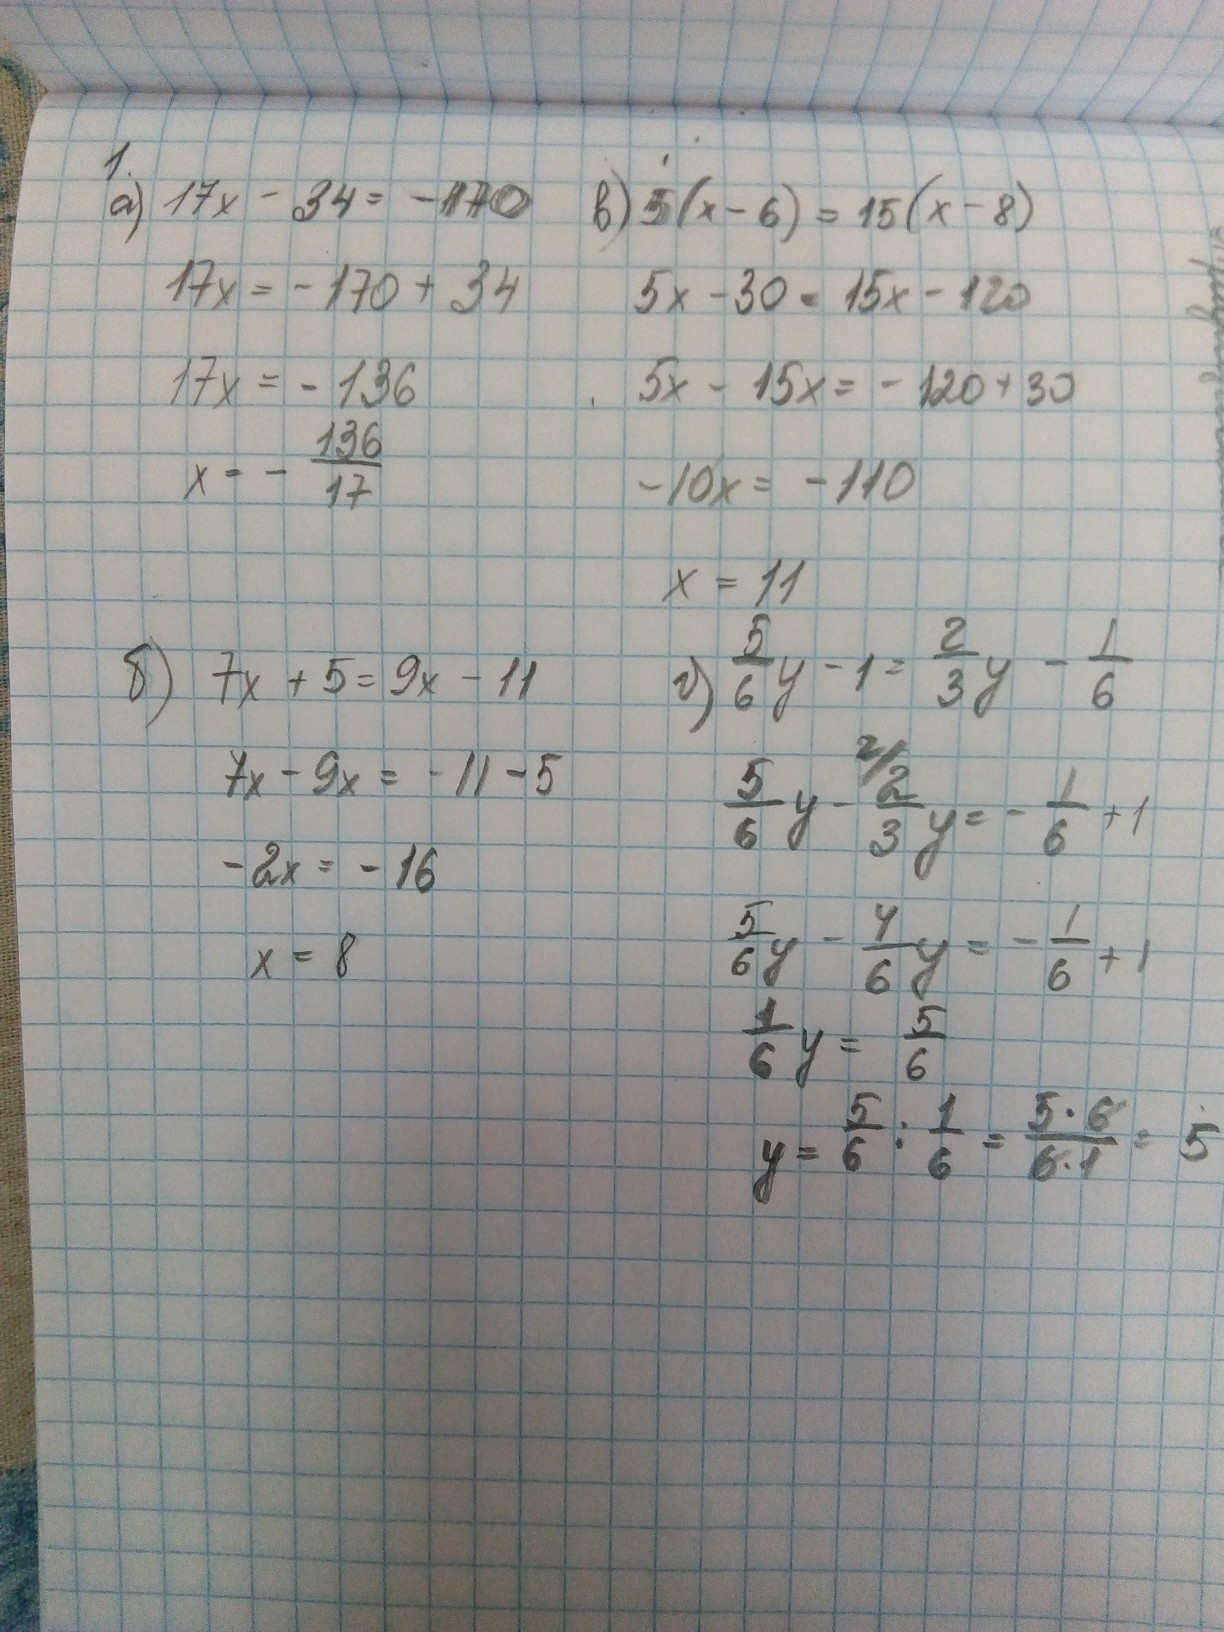 1.
а) 17x - 34 = -170
17x = -170 + 34
17x = - 136
x = - 136/17
б) 7x + 5 = 9x - 11
7x - 9x = -11 - 5
-2x = -16
x = 8
в) 5(x - 6) = 15(x - 8)
5x - 30 = 15x - 120
5x - 15x = - 120 + 30
-10x = -110
x = 11
г) 5/6 y - 1 = 2/3 y - 1/6
5/6 y - 2/ 2/3 y = - 1/6 + 1
5/6 y - 4/6 y = - 1/6 + 1
1/6 y = 5/6
y = 5/6 : 1/6 = 5·6/6·1 = 5